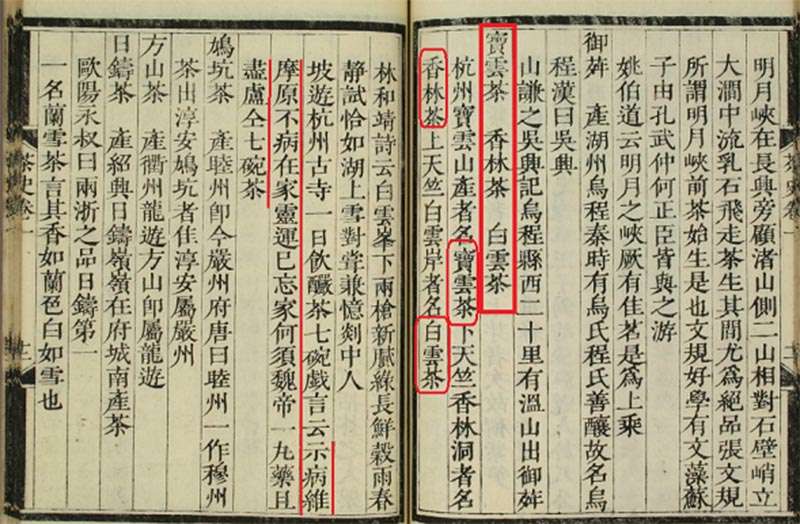 明月峽在長興旁顧渚山側二山相對石壁峭立
大澗中流乳石飛走茶生其間尤為絕品張文規
所謂明月峽前茶始生是也文規好學有文藻蘇
子由孔武仲何正臣皆與之游
姚伯道云明月之峽厥有佳茗是為上乘
御荈 產湖州烏程秦時有烏氏程氏善釀故名烏
程漢曰吳興
山謙之吳興記烏程縣西二十里有溫山出御荈
寶雲茶 香林茶 白雲茶
杭州寶雲山產者名寶雲茶下天竺香林洞者名
香林茶上天竺白雲岸者名白雲茶
林和靖詩云白雲峯下兩槍新膩綠長鮮穀雨春
靜試恰如湖上雪對嘗兼憶剡中人
坡遊杭州古寺一日飲釅茶七碗戲言云示病維
摩原不病在家靈運已忘家何須魏帝一丸藥且
盡盧仝七碗茶
鳩坑茶 產睦州卽今嚴州府唐曰睦州一作穆州
茶出淳安鳩坑者佳淳安屬嚴州
方山茶 產衢州龍遊方山卽屬龍遊
日鑄茶 產紹興日鑄嶺嶺在府城南產茶
歐陽永叔曰兩浙之品日鑄第一
一名蘭雪茶言其香如蘭色白如雪也
茶史卷一